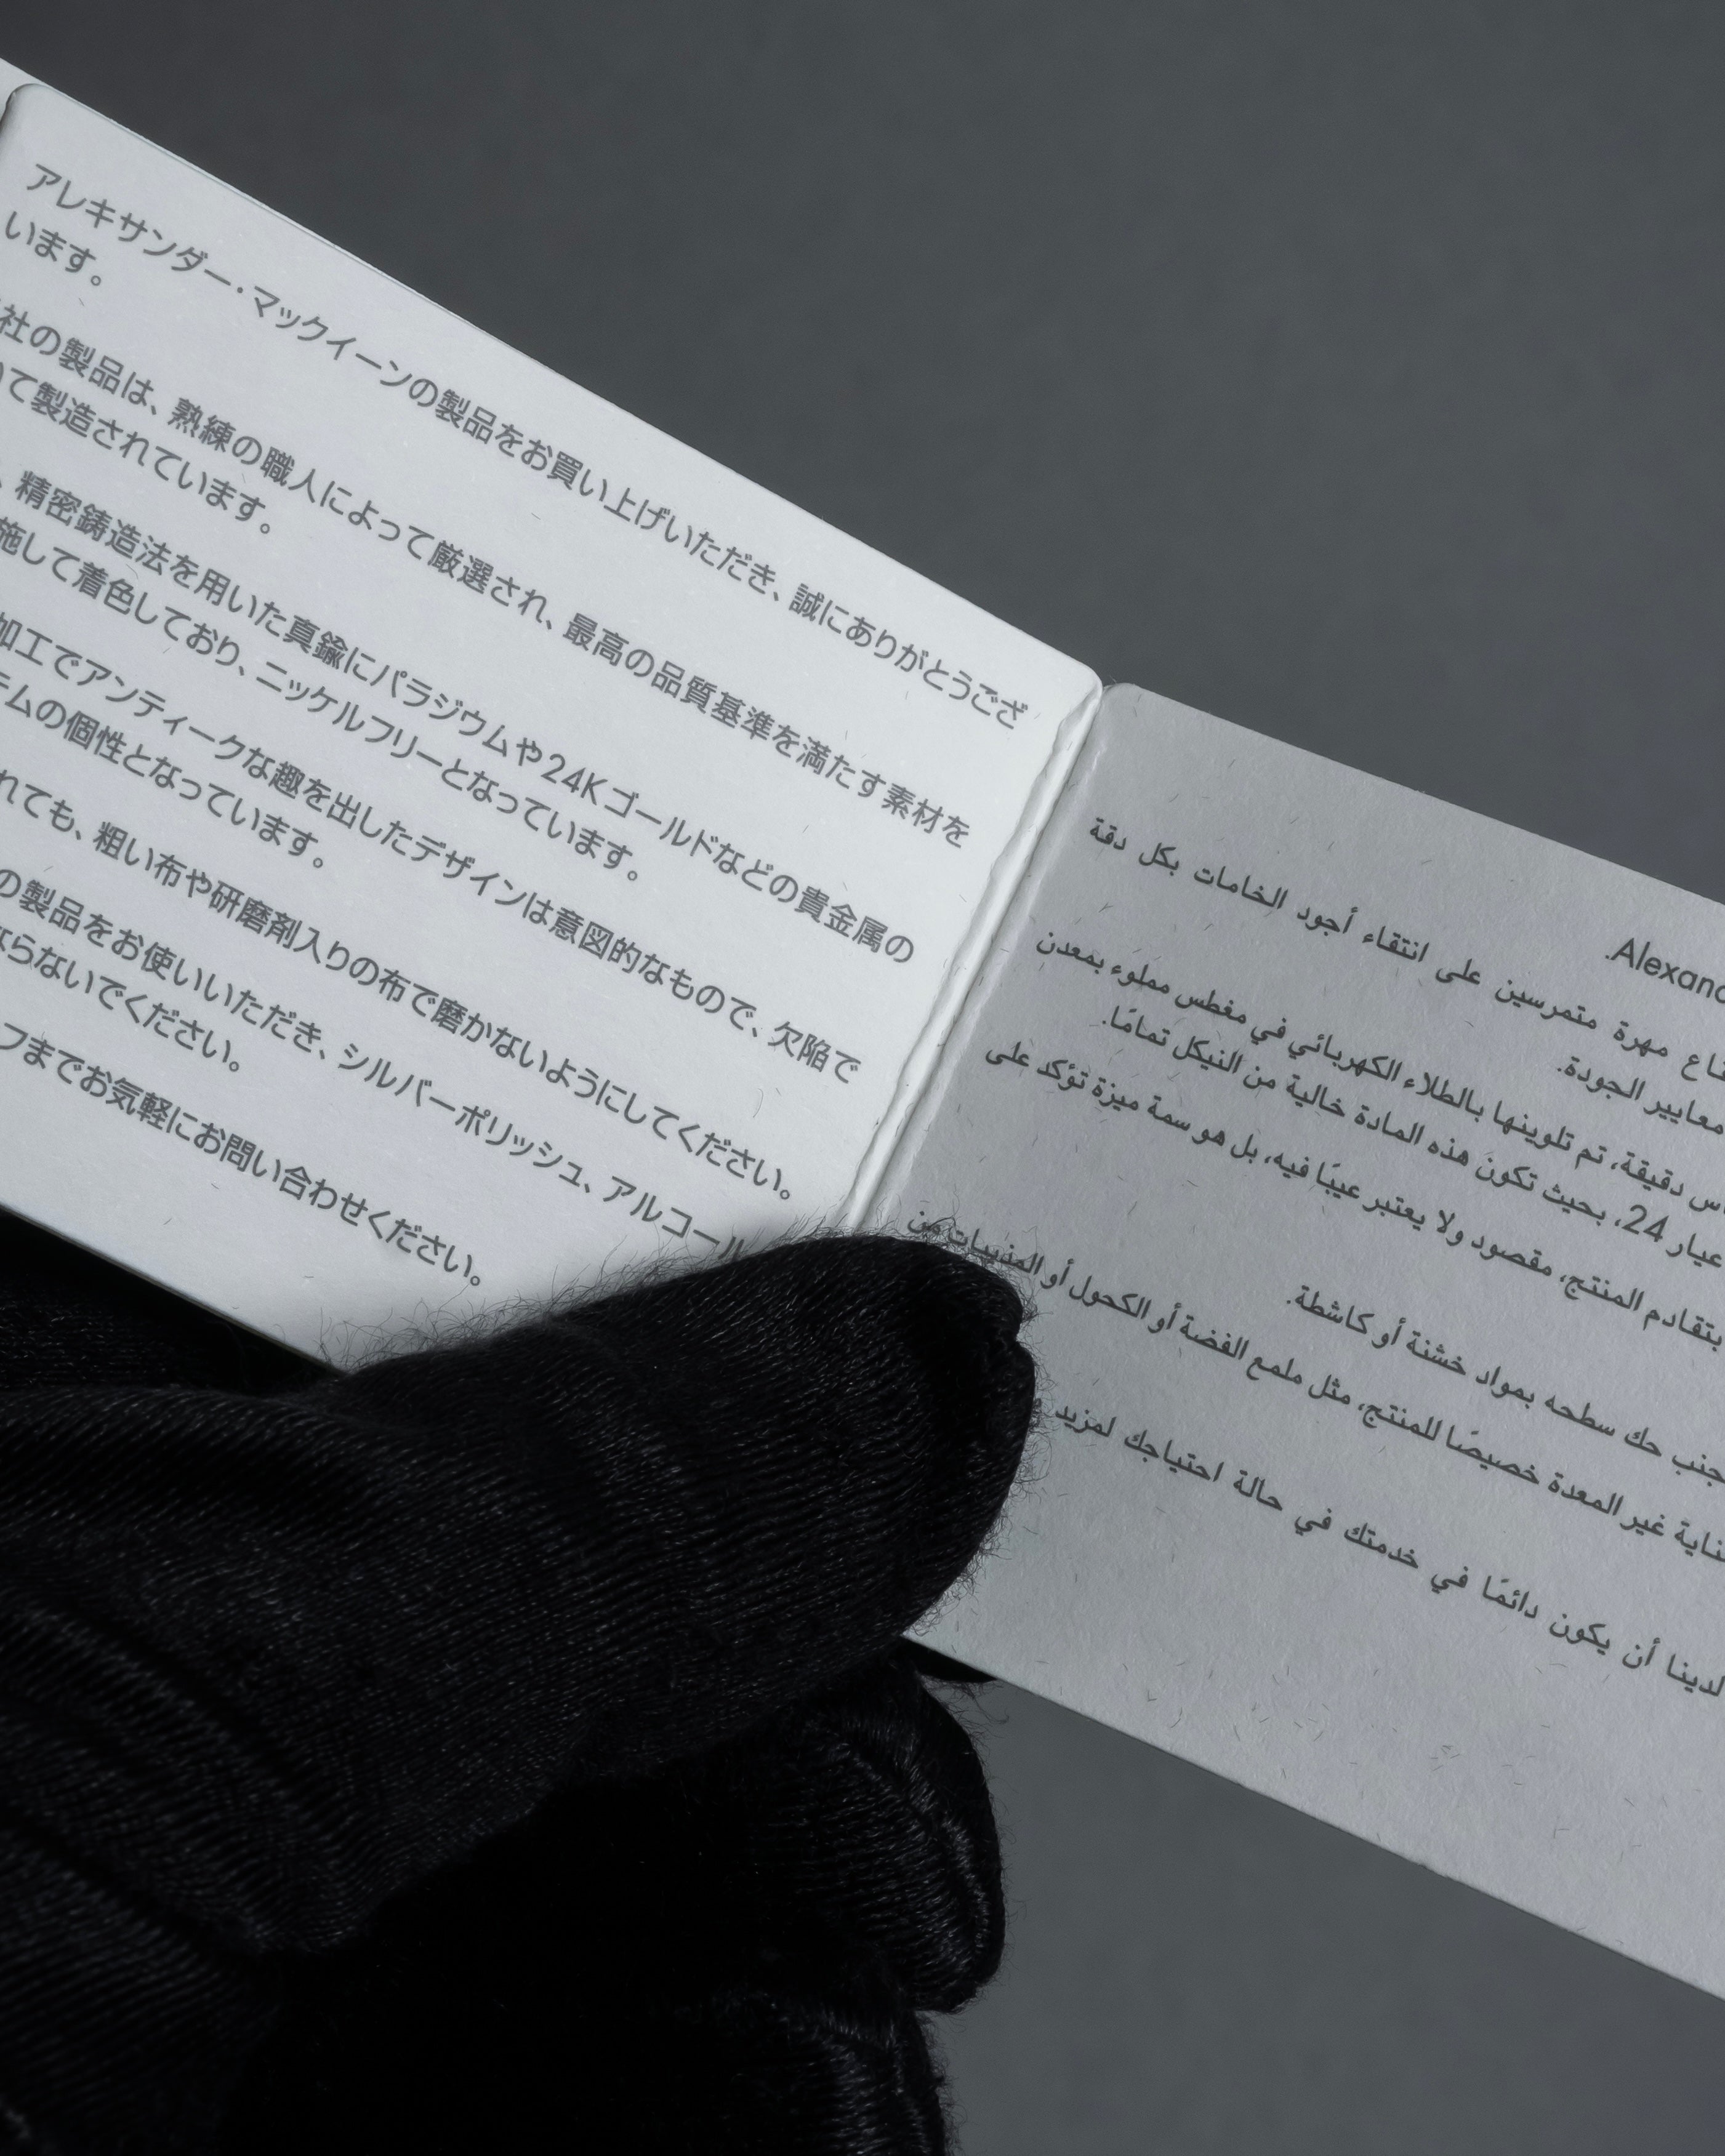 アレキサンダー・マックイーンの製品をお買い上げいただき、誠にありがとうござ
います。
社の製品は、熟練の職人によって厳選され、最高の品質基準を満たす素材を
て製造されています。
、精密鋳造法を用いた真鍮にパラジウムや24Kゴールドなどの貴金属の
施して着色しており、ニッケルフリーとなっています。
加工でアンティークな趣を出したデザインは意図的なもので、欠陥で
テムの個性となっています。
れても、粗い布や研磨剤入りの布で磨かないようにしてください。
の製品をお使いいただき、シルバーポリッシュ、アルコール
ならないでください。
フまでお気軽にお問い合わせください。
.Alexand
مهرة متمرسين على انتقاء أجود الخامات بكل دقة
معايير الجودة.
دقيقة، تم تلوينها بالطلاء الكهربائي في مغطس مملوء بمعدن
عيار 24، بحيث تكون هذه المادة خالية من النيكل تمامًا.
بتقادم المنتج، مقصود ولا يعتبر عيبًا فيه، بل هو سمة ميزة تؤكد على
جنب حك سطحه بمواد خشنة أو كاشطة.
غير المعدة خصيصًا للمنتج، مثل ملمع الفضة أو الكحول أو المذيبات من
لدينا أن يكون دائمًا في خدمتك في حالة احتياجك لمزيد